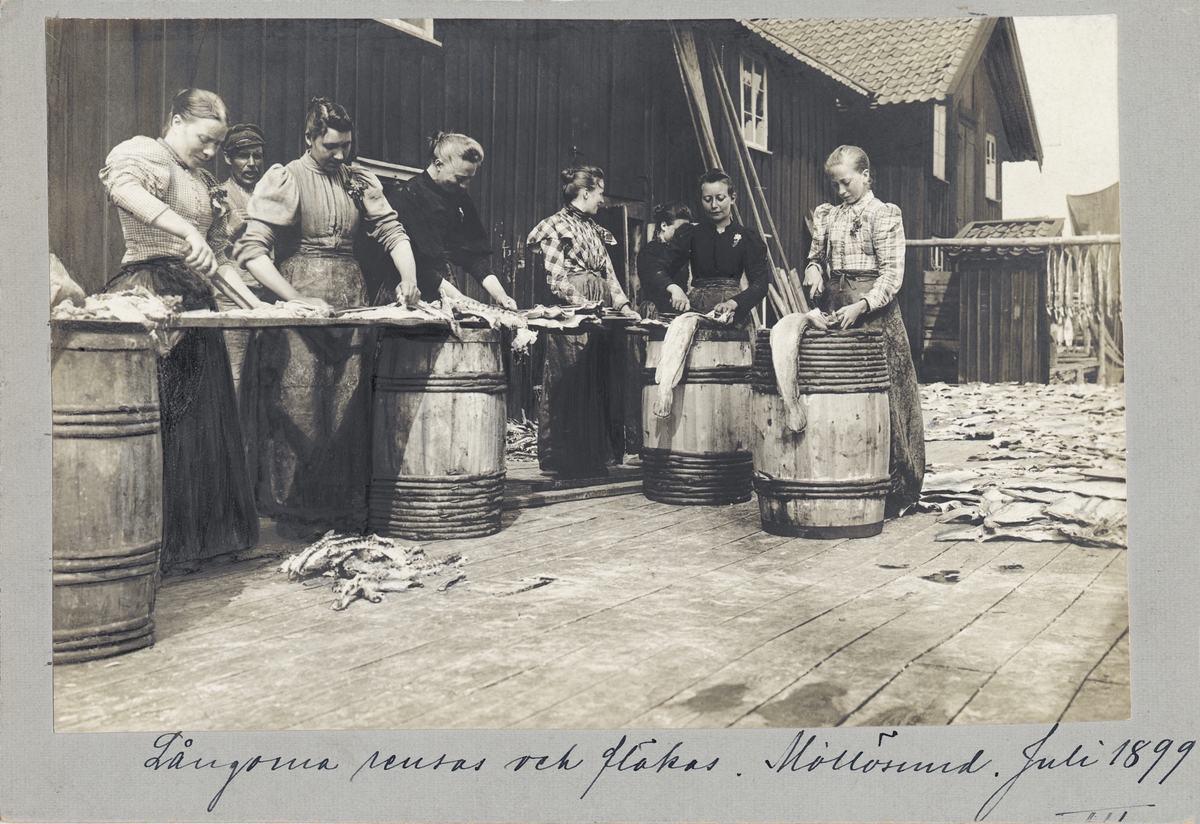 Långorna rensas och fläkas. Mollösund. Juli 1899
III